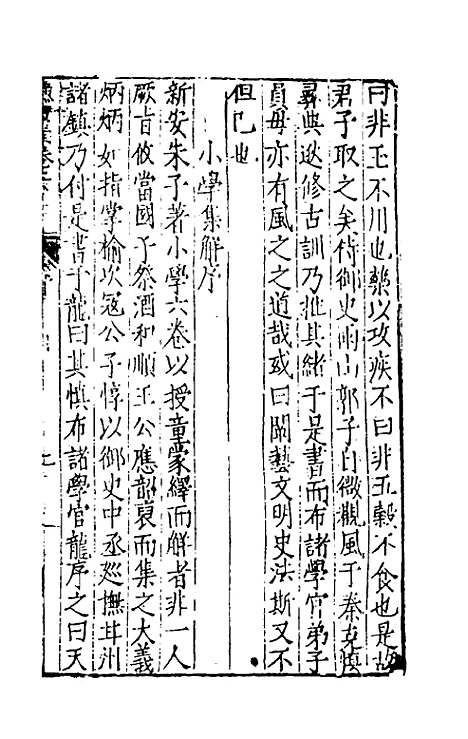 同非玉不用也藥以攻疾不曰非五穀不食也是故
君子取之矣侍御史雨山郭子自微觀風于秦克慎
彞典迯修古訓乃推其緒于是書而布諸學官弟子
員毋亦有風之之道哉或曰閎藝文明史法斯又不
但已也
小學集解序
新安朱子著小學六卷以授童蒙繹而解者非一人
厥旨攸當國子祭酒和順王公應韶裒而集之大義
炳炳如指掌榆次寇公子惇以御史中丞廵撫其州
諸鎮乃付是書于龍曰其慎布諸學官龍序之曰天